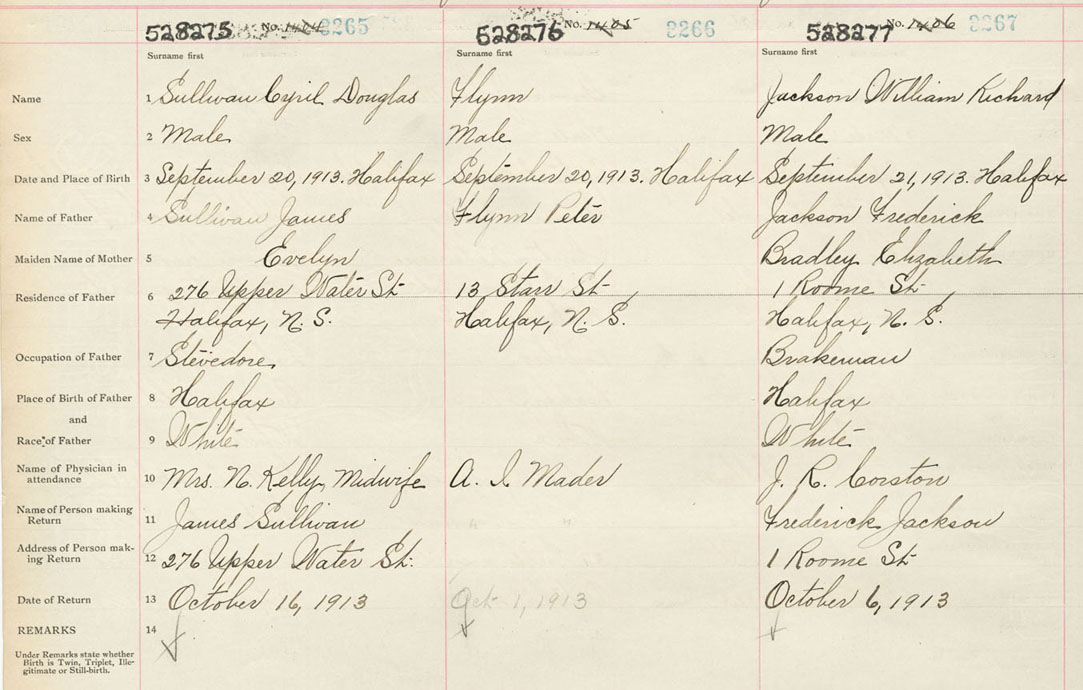 528275 No. 1404 2265 528276 No. 1405 2266 528277 No. 1406 2267
Surname first Surname first Surname first
Name 1 Sullivan Cyril Douglas Flynn Jackson William Richard
Sex 2 Male Male Male
Date and Place of Birth 3 September 20, 1913. Halifax September 20, 1913. Halifax September 21, 1913. Halifax
Name of Father 4 Sullivan James Flynn Peter Jackson Frederick
Maiden Name of Mother 5 Evelyn Bradley Elizabeth
Residence of Father 6 276 Upper Water St. 13 Starr St 1 Roome St.
Halifax, N. S. Halifax, N. S. Halifax, N. S.
Occupation of Father 7 Stevedore Brakeman
Place of Birth of Father 8 Halifax Halifax
and
Race of Father 9 White White
Name of Physician in
attendance 10 Mrs. N. Kelly, Midwife A. I. Mader J. R. Corston
Name of Person making
Return 11 James Sullivan " " Frederick Jackson
Address of Person mak-
ing Return 12 276 Upper Water St. 1 Roome St
Date of Return 13 October 16, 1913 Oct. 1, 1913 October 6, 1913
REMARKS 14
Under Remarks state whether
Birth is Twin, Triplet, Ille-
gitimate or Still-birth.